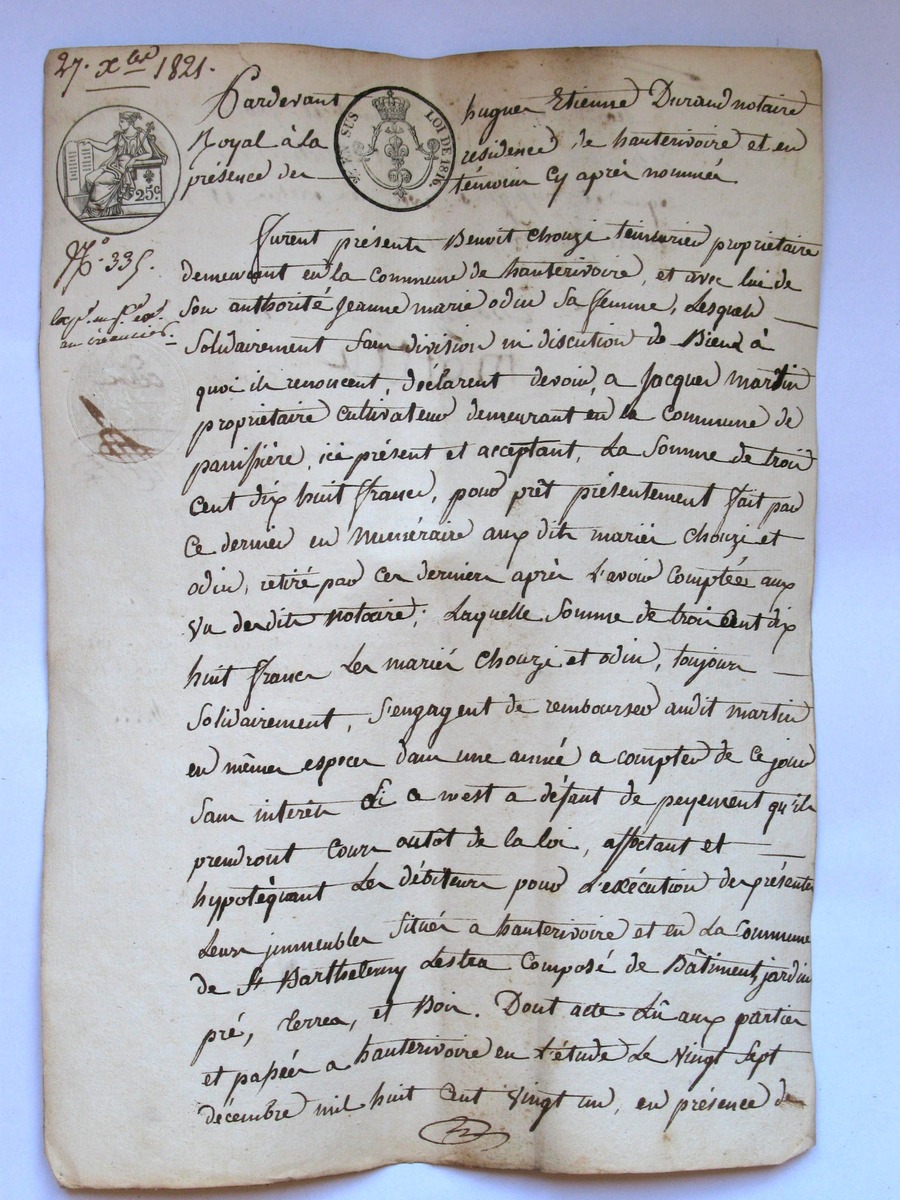 27. Xbre 1821.
Pardevant hugues Etienne Durand notaire
Royal à la résidence de hauterivoire et en
présence des témoins Cy après nommés
EN SUS LOI DE 1816.
25c.
N.° 335.
au créancier.
furent présents Benoit Chouzi teinturier propriétaire
demeurant en la commune de hauterivoire, et avec lui de
Son authorité Jeanne marie odin Sa femme, Lesquels
Solidairement Sans division ni discution de Biens à
quoi ils renoncent, déclarent devoir, a Jacques Martin
propriétaire cultivateur demeurant en la commune de
panissière, ice présent et acceptant, La Somme de trois
Cent dix huit francs, pour prêt présentement fait par
Ce dernier en numéraire aux dits mariés Chouzi et
odin, retiré par ces derniers après L'avoir Comptée aux
Vu desdits notaire; Laquelle Somme de trois Cent dix
huit francs Les mariés Chouzi et odin, toujours
Solidairement, S'engagent de rembourser audit martin
en mêmes especes dans une année a compter de ce jour
Sans interêts Si ce n'est a défaut de payement qu'ils
prendront Cours au tôt de la loi, affectant et
hypotèquant Les débiteurs pour L'exécution des présentes
Leurs immeubles Situés a hauterivoire et en La Commune
de St Barthelemy Lestra Composé de Bâtiments, jardin
pré, terres, et Bois. Dont acte Lû aux parties
et passées a hauterivoire en l'étude Le Vingt Sept
décembre mil huit Cent Vingt un, en présence de